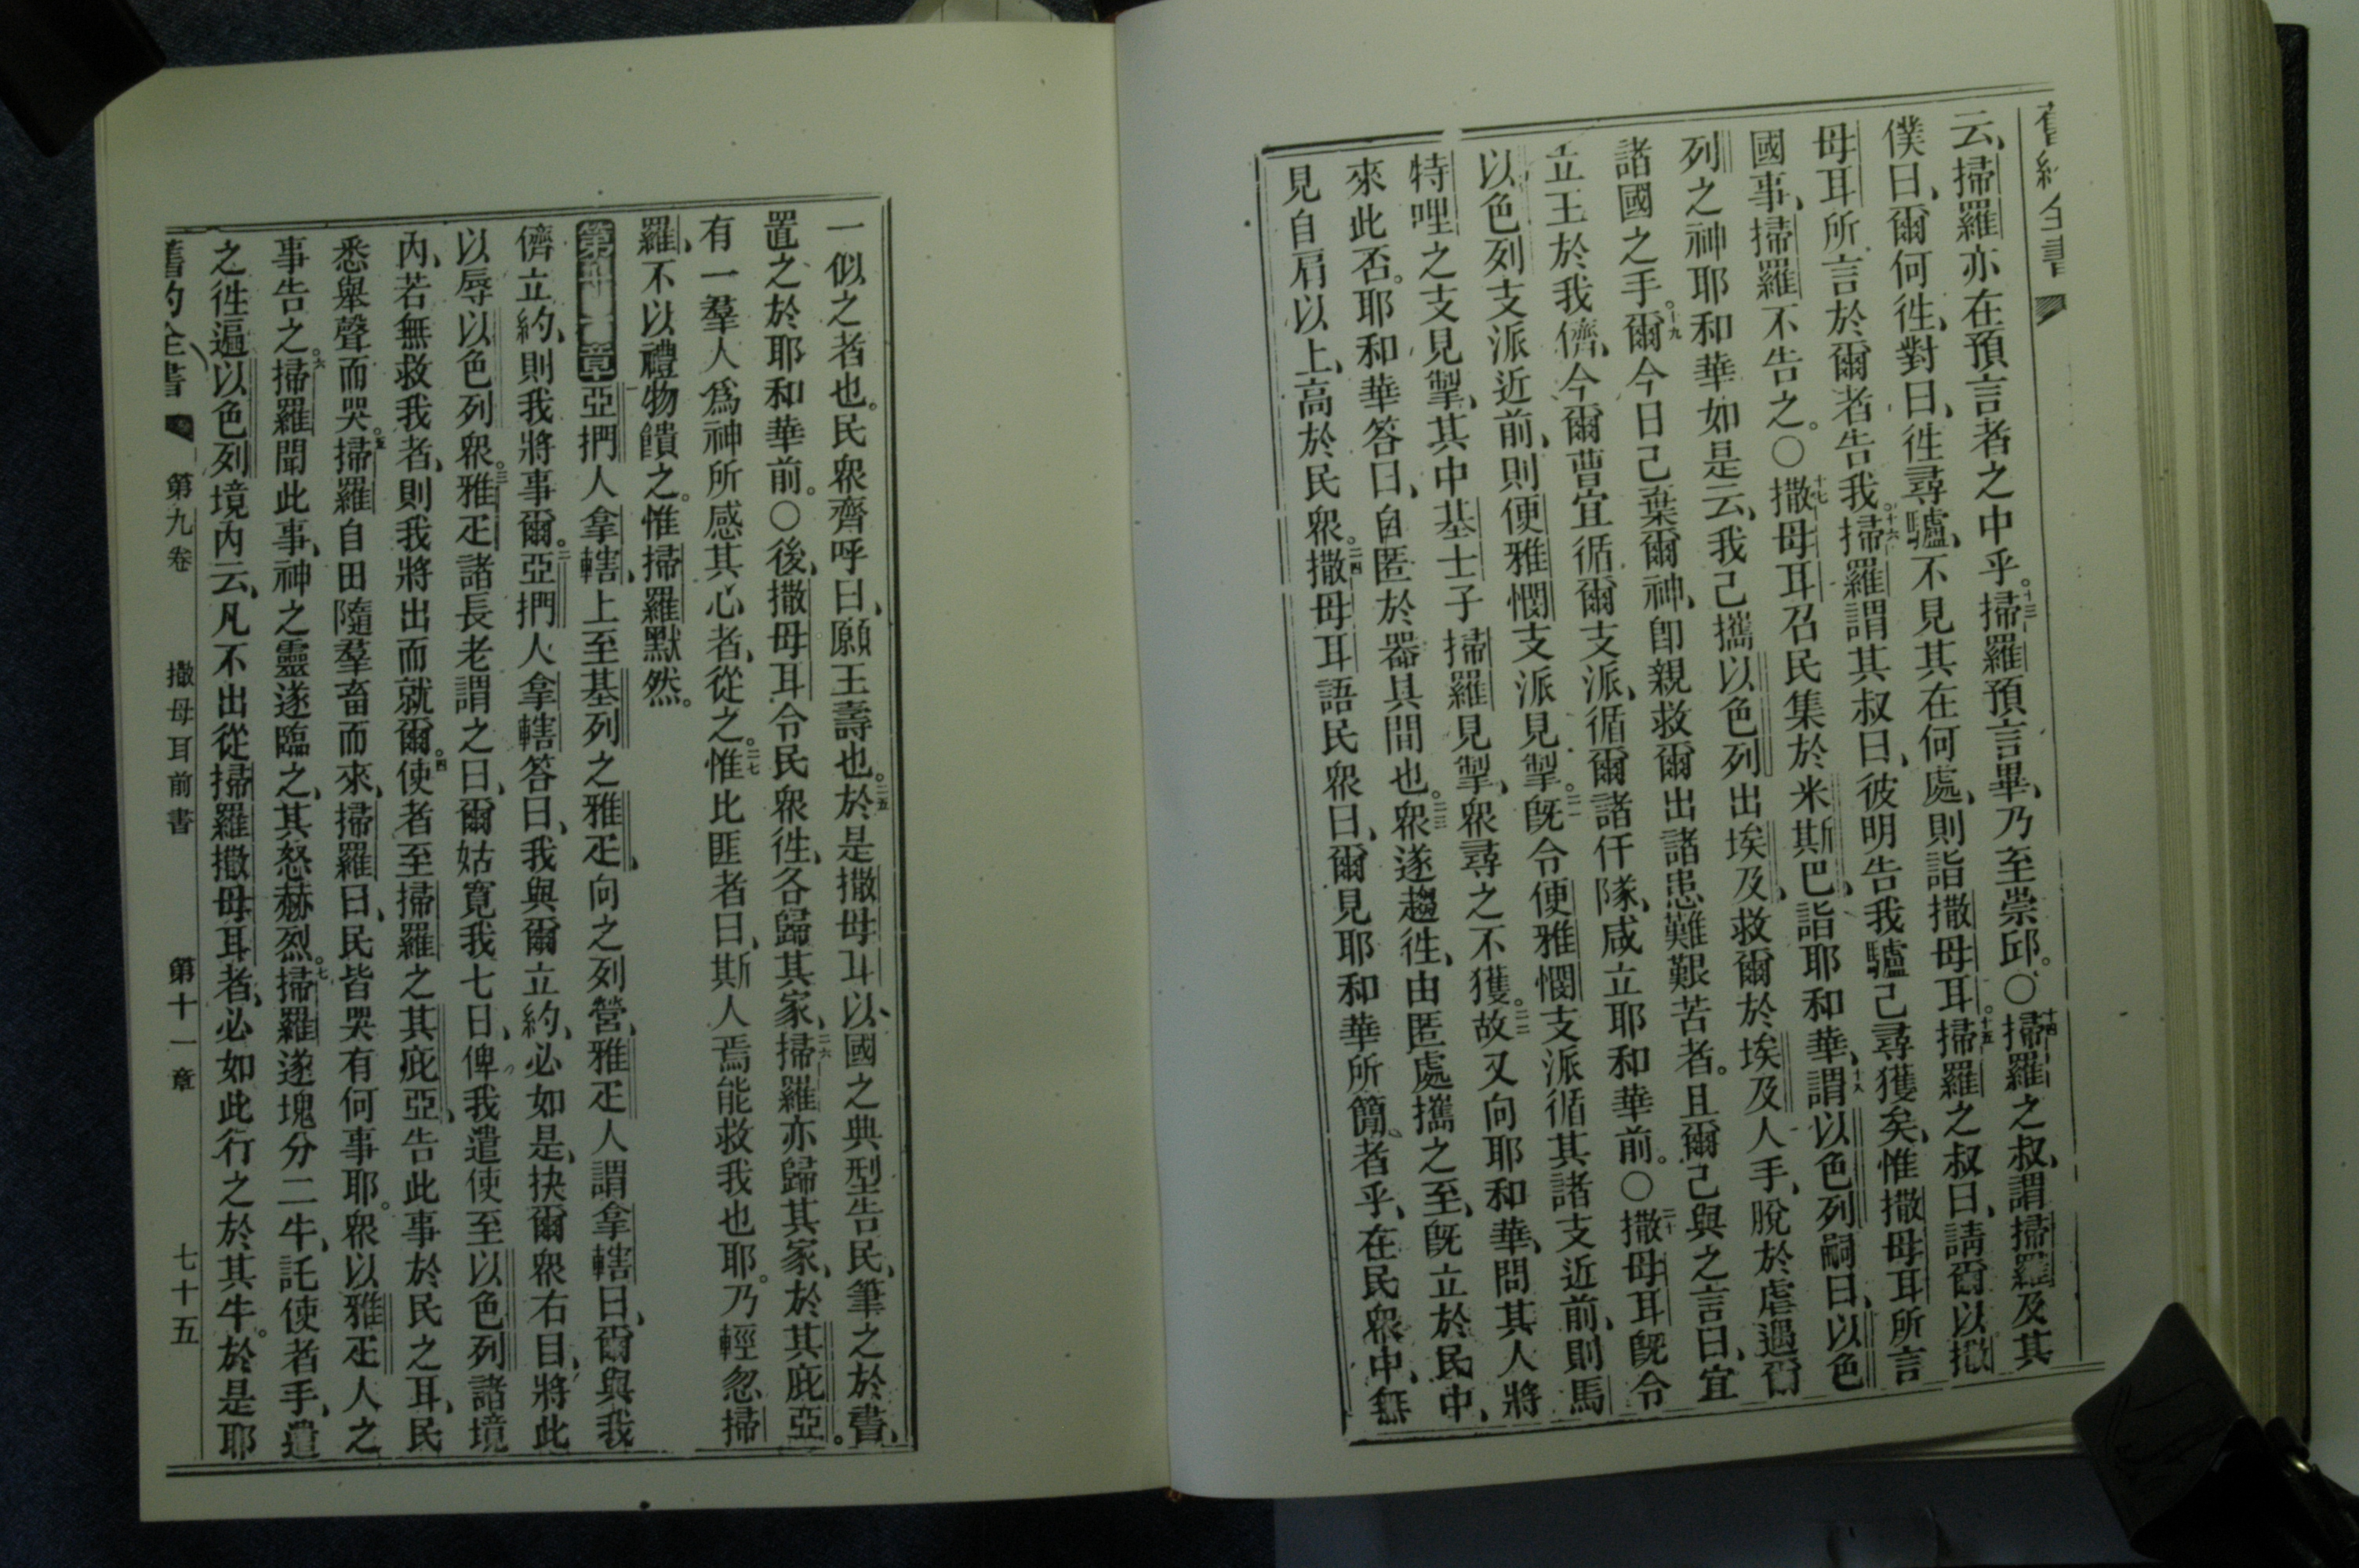 舊約全書
云、掃羅亦在預言者之中乎。十三掃羅預言畢、乃至崇邱。〇十四掃羅之叔、謂掃羅及其
僕曰、爾何徃、對曰、徃尋驢、不見其在何處、則詣撒母耳。十五掃羅之叔曰、請爾以撒
母耳所言於爾者告我。十六掃羅謂其叔曰、彼明告我驢己尋獲矣、惟撒母耳所言
國事、掃羅不告之。〇十七撒母耳召民集於米斯巴、詣耶和華、十八謂以色列嗣曰、以色
列之神耶和華如是云、我己攜以色列出埃及、救爾於埃及人手、脫於虐遇爾
諸國之手。十九爾今日己棄爾神、卽親救爾出諸患難艱苦者。且爾己與之言曰、宜
立王於我儕、今爾曹宜循爾支派、循爾諸仟隊、咸立耶和華前。〇二十撒母耳旣令
以色列支派近前、則便雅憫支派見掣。二一旣令便雅憫支派循其諸支近前、則馬
特哩之支見掣、其中基士子掃羅見掣、衆尋之不獲。二二故又向耶和華、問其人將
來此否。耶和華答曰、自匿於器具間也。二三衆遂趨徃、由匿處攜之至、旣立於民中、
見自肩以上、高於民衆。二四撒母耳語民衆曰、爾見耶和華所簡者乎、在民衆中、無
一似之者也。民衆齊呼曰、願王壽也。二五於是撒母耳以國之典型告民、筆之於書、
置之於耶和華前。〇後、撒母耳令民衆徃、各歸其家、二六掃羅亦歸其家、於其庇亞。
有一羣人爲神所感其心者、從之。二七惟比匪者曰、斯人焉能救我也耶。乃輕忽掃
羅、不以禮物饋之。惟掃羅默然。
第十一章 亞捫人拿轄、上至基列之雅疋、向之列營、雅疋人謂拿轄曰、爾與我
儕立約、則我將事爾。二亞捫人拿轄答曰、我與爾立約、必如是、抉爾衆右目、將此
以辱以色列衆。三雅疋諸長老謂之曰、爾姑寬我七日、俾我遣使至以色列諸境
內、若無救我者、則我將出而就爾。四使者至掃羅之其庇亞、告此事於民之耳、民
悉舉聲而哭。五掃羅自田隨羣畜而來、掃羅曰、民皆哭有何事耶。衆以雅疋人之
事告之。六掃羅聞此事、神之靈遂臨之、其怒赫烈。七掃羅遂塊分二牛、託使者手、遣
之徃遍以色列境內云、凡不出從掃羅撒母耳者、必如此行之於其牛。於是耶
舊約全書 第九卷 撒母耳前書 第十一章 七十五